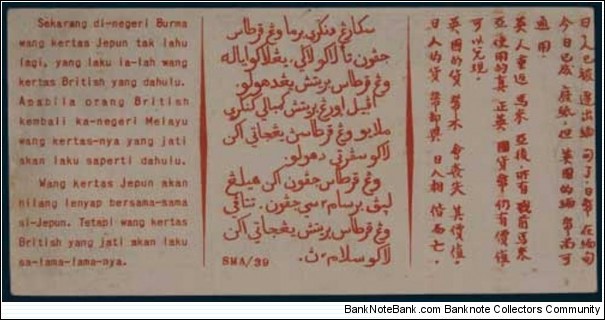 Sekarang di-negeri Burma
wang kertas Jepun tak lahu
lagi, yang laku ia-lah wang
kertas British yang dahulu.
Apabila orang British
kembali ka-negeri Melayu
wang kertas-nya yang jati
akan laku saperti dahulu.
Wang kertas Jepun akan
hilang lenyap bersama-sama
si-Jepun. Tetapi wang kertas
British yang jati akan laku
sa-lama-lama-nya.
سكارڠ دنڬري برما وڠ قرطاس
جڤون تا لاكو لاڬي، يڠ لاكو اياله
وڠ قرطاس بريتش يڠ دهولو.
اڤبيل اورڠ بريتش كمبالي كنڬري
ملايو وڠ قرطاسن يڠ جاتي اكن
لاكو سڤرتي دهولو.
وڠ قرطاس جڤون اكن هيلڠ
لڽڤ برسام٢ سي جڤون. تتاڤي
وڠ قرطاس بريتش يڠ جاتي اكن
لاكو سلام٢ن.
SMA/39
日人已被逐出緬甸了，日幣在緬甸
今日已成廢紙，但英國的緬幣尚可
通用。
英人重返馬來亞後，所有戰前馬來
亞使用的真正英國貨幣，仍有價值，
可以兌現。
英國的貨幣不會喪失其價值，
日人的貨幣卻與日人相偕而亡。
BankNoteBank.com - Banknote Collectors Community